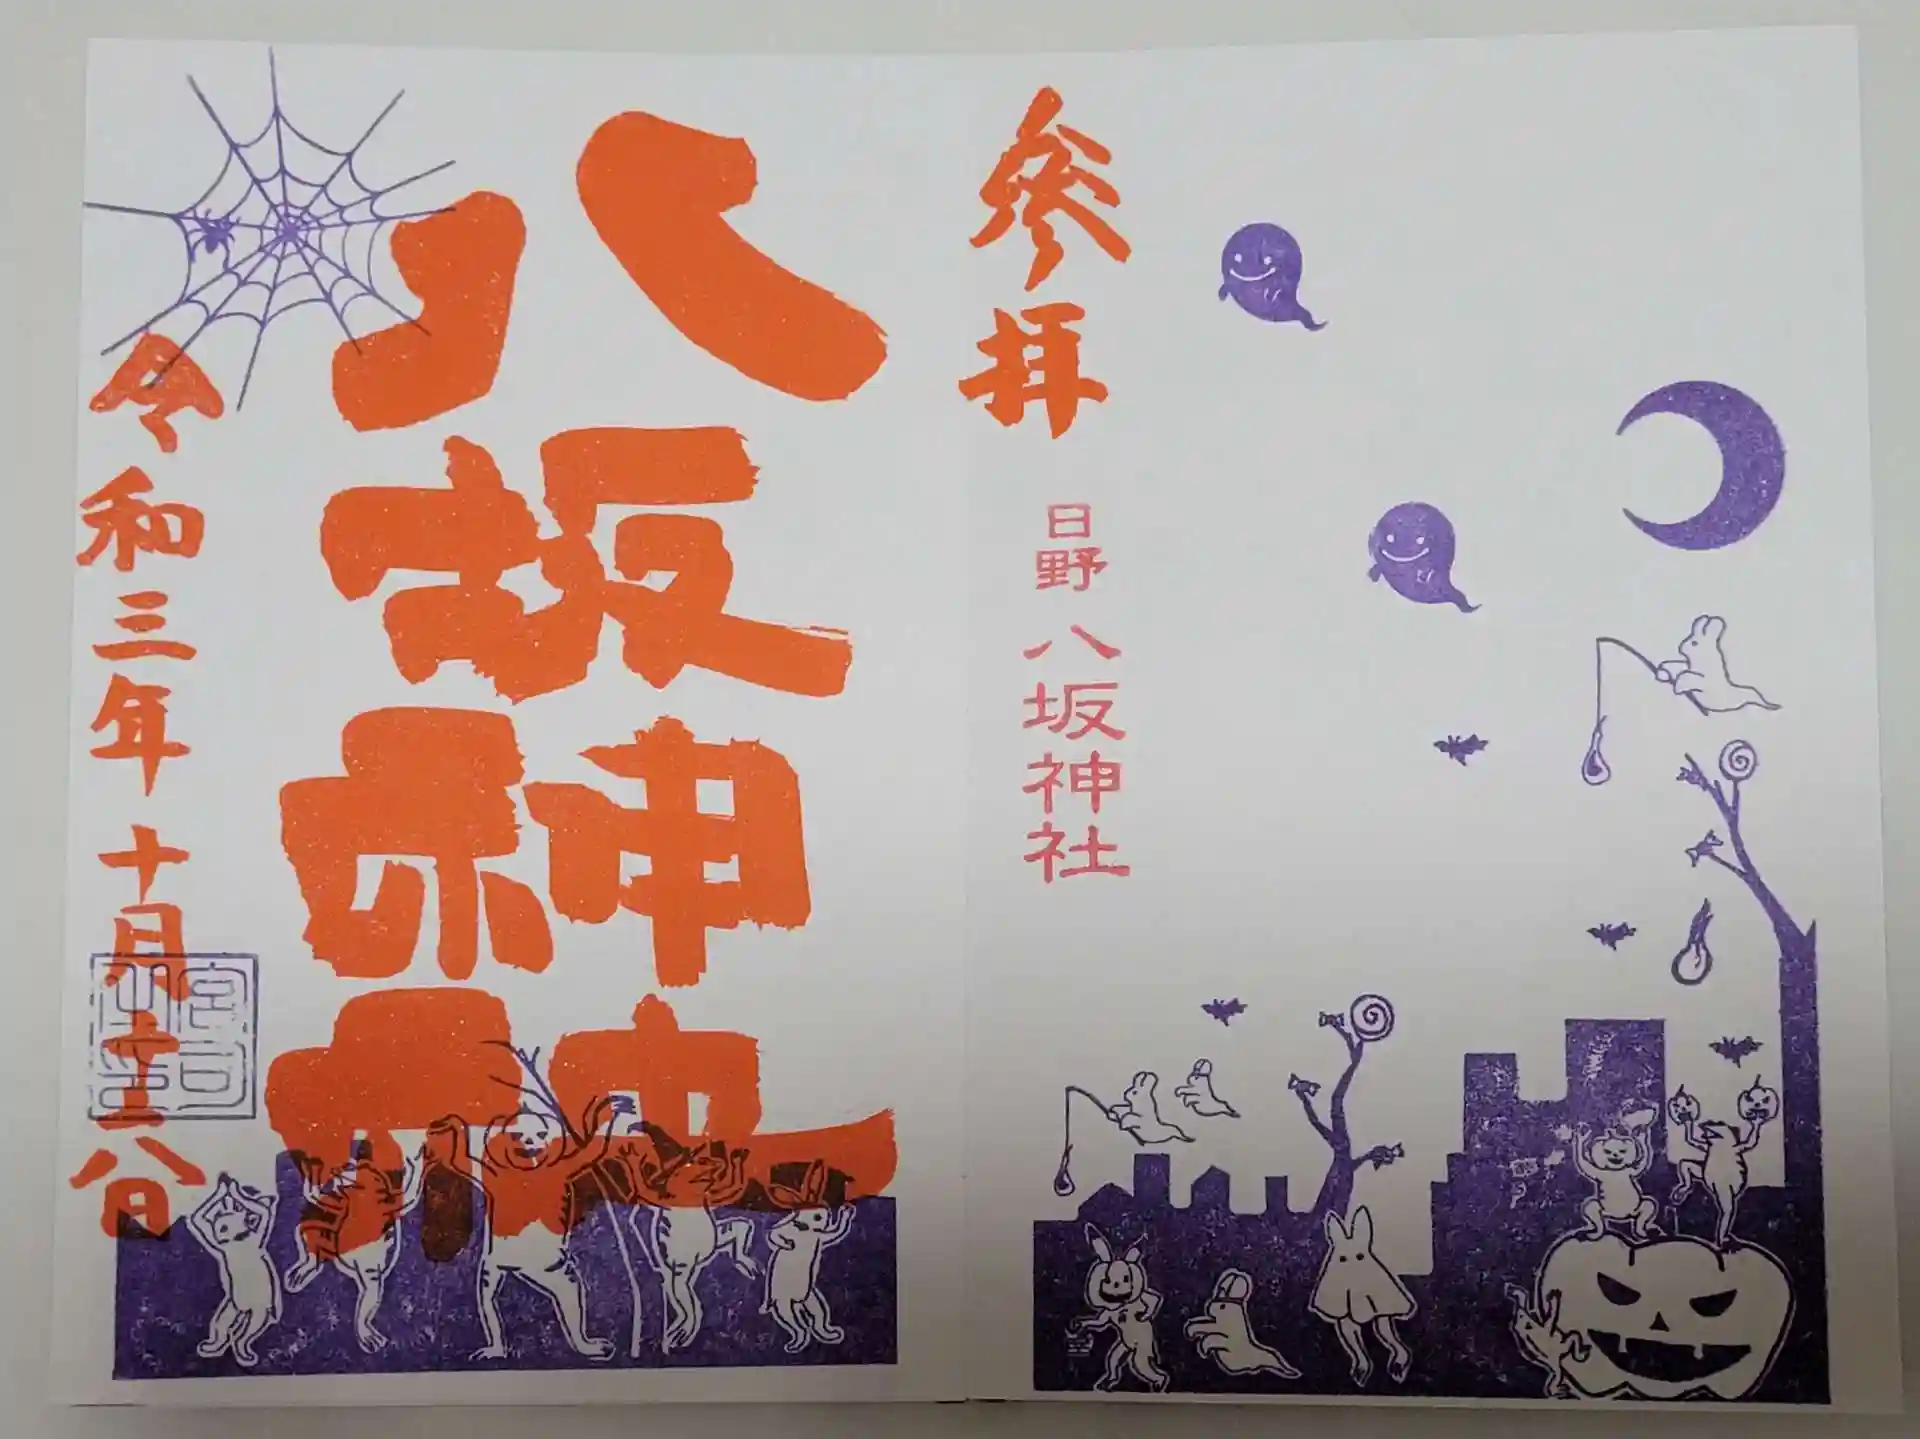 参拝
日野 八坂神社
八坂神社
令和三年十月
宮司之印